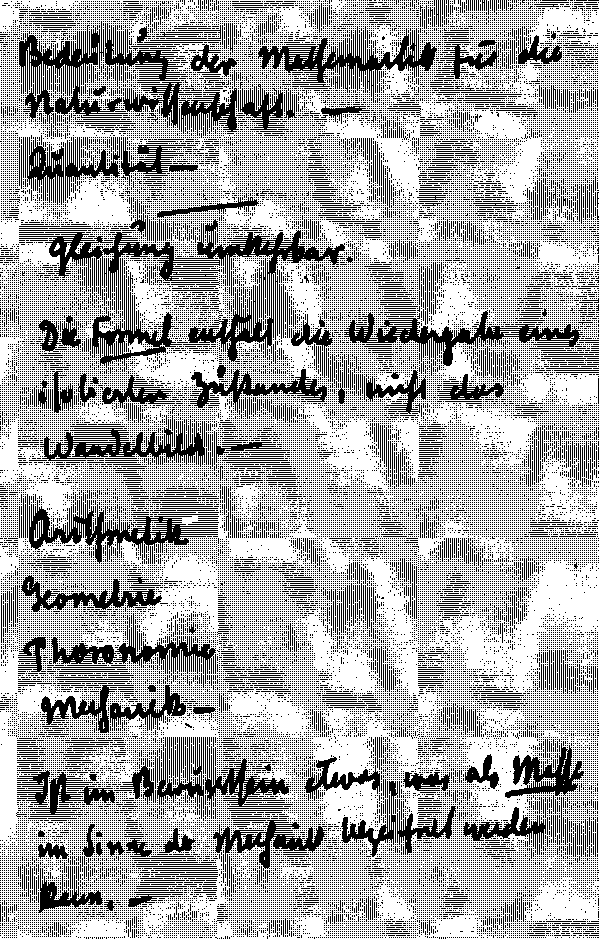 Bedeutung der Mathematik für die
Naturwissenschaft. —
Quantität —
Gleichung umkehrbar.
Die Formel enthält die Wiedergabe eines
isolierten Zustandes, nicht das
Wandelbild. —
Arithmetik
Geometrie
Phoronomie
Mechanik —
Ist im Bewußtsein etwas, was als Masse
im Sinne der Mechanik bezeichnet werden
kann. —